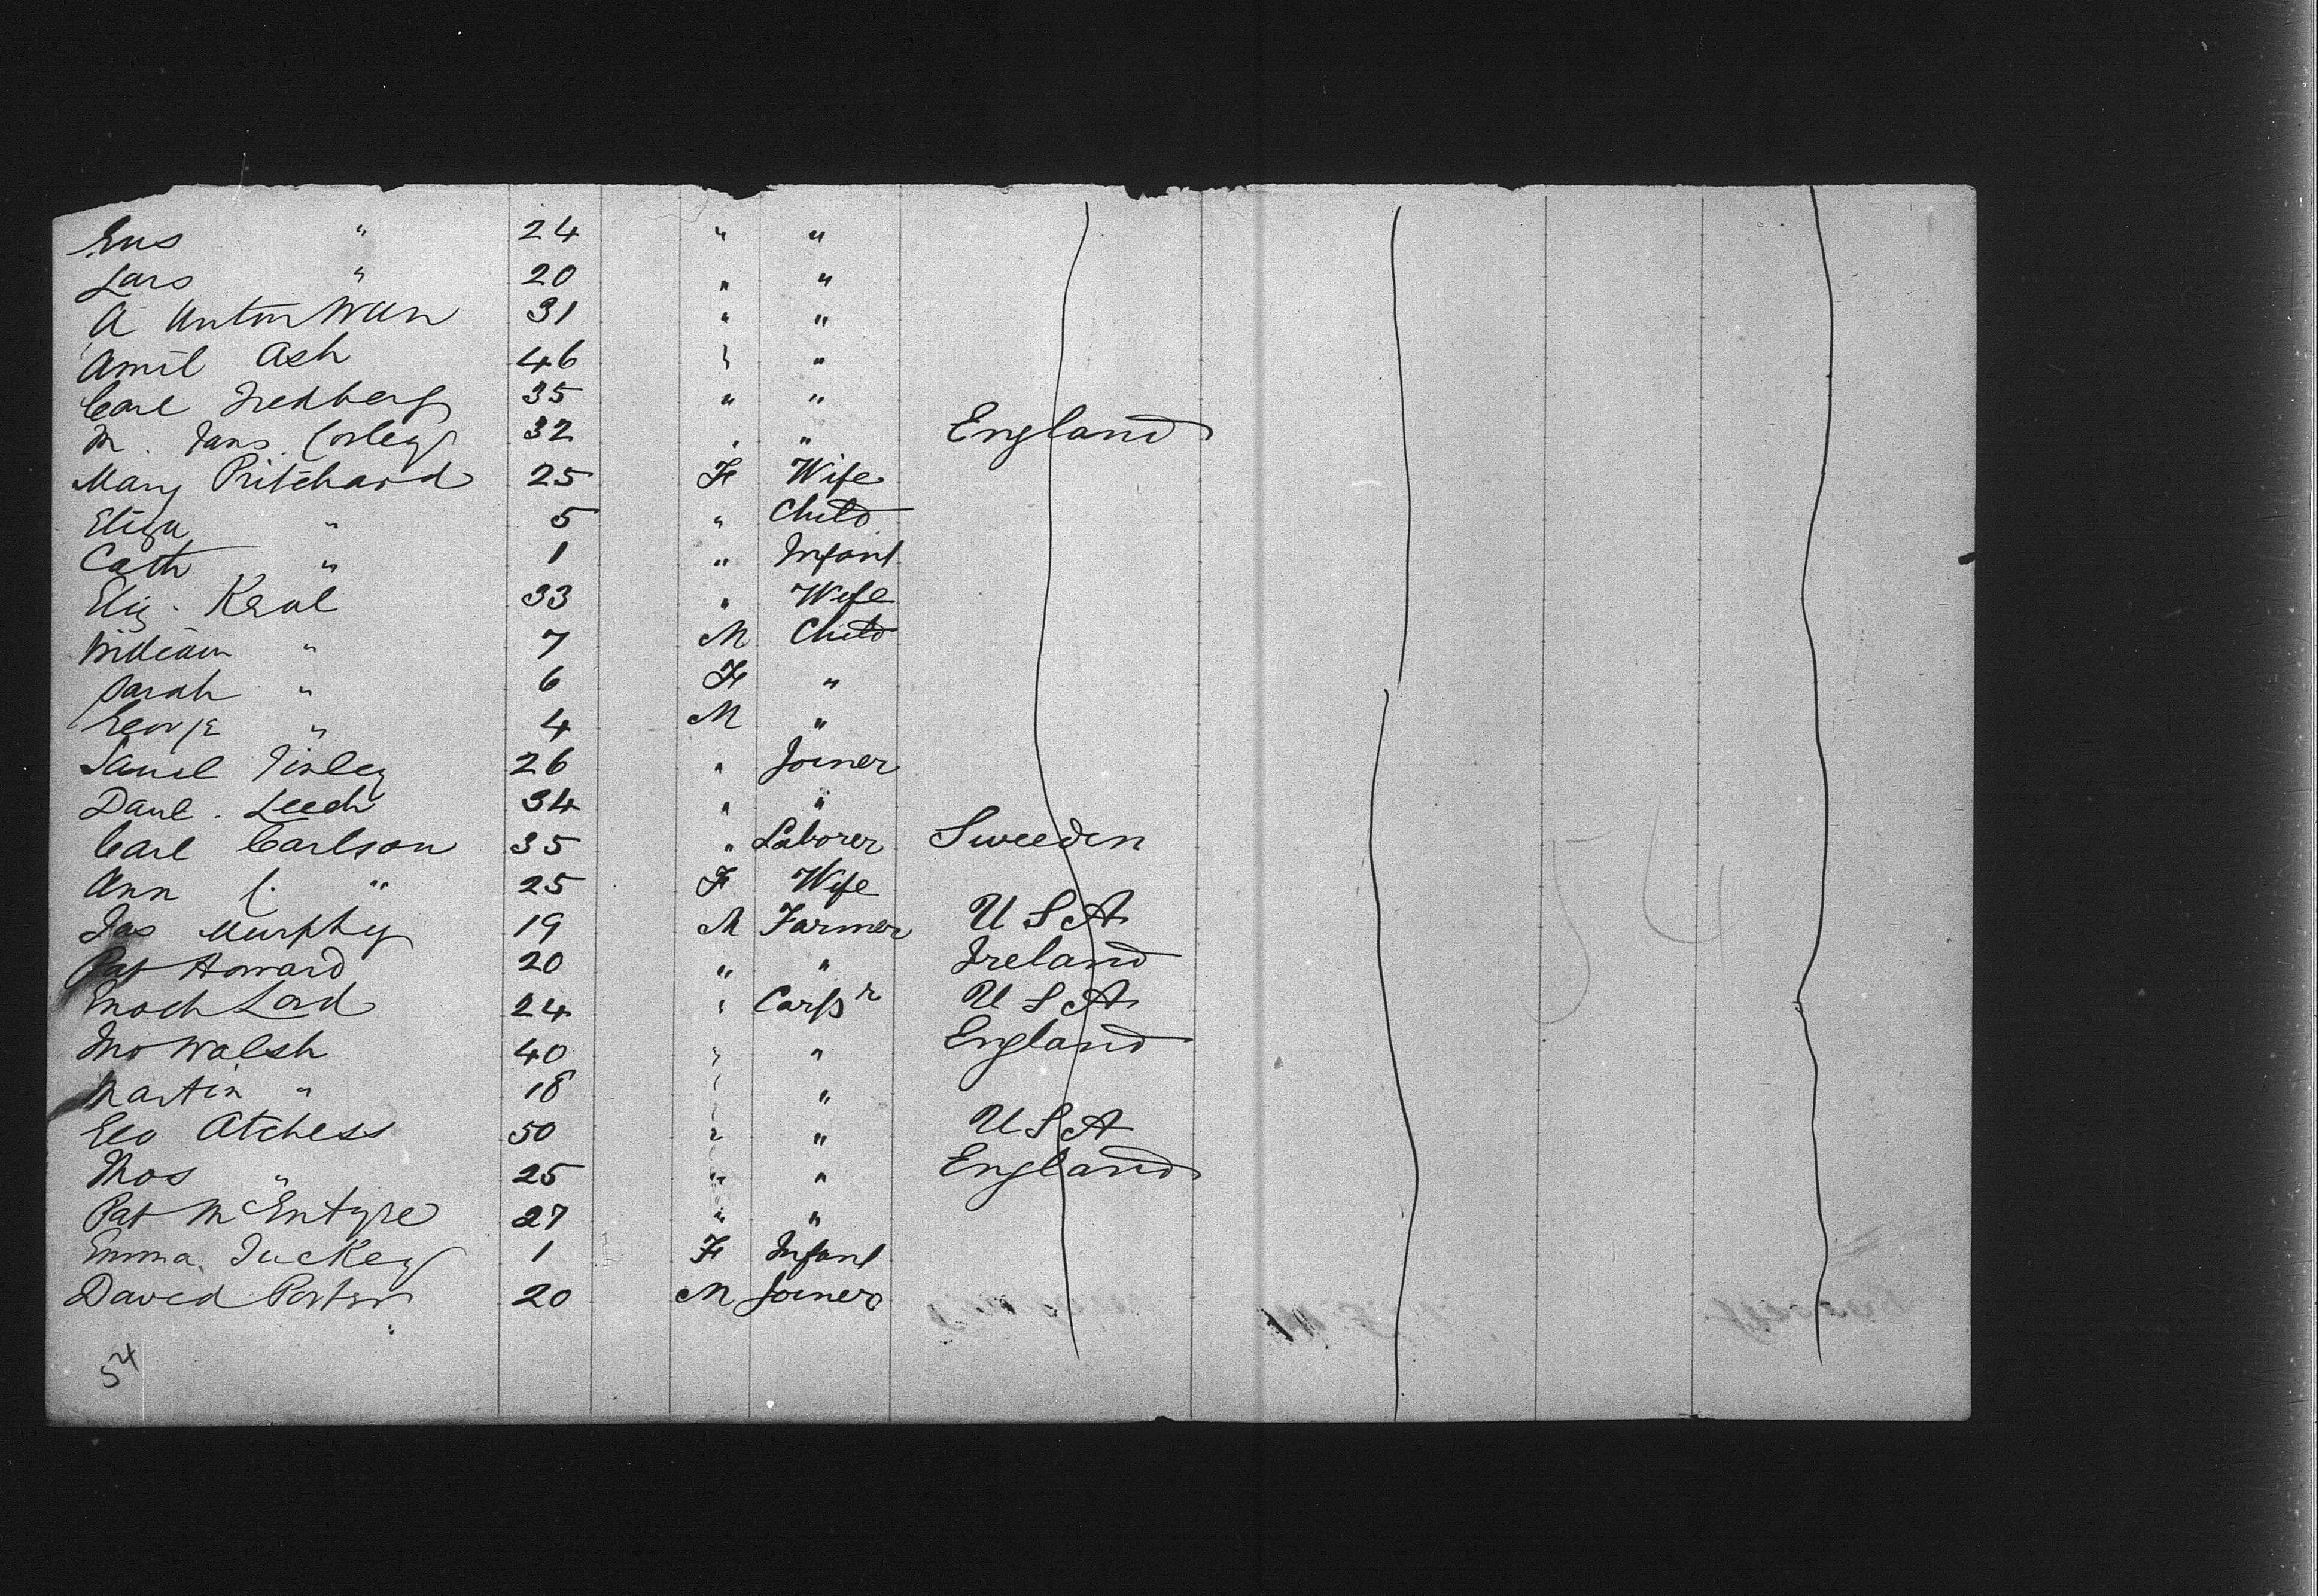 " 24 " "
Lars " 20 " "
A Anton Wan 31 " "
Amil Ash 46 " "
Carl Fredberg 35 " "
M. Jans. Corley 32 " " England
Mary Pritchard 25 F Wife
Eliza " 5 " Child
Cath " 1 " Infant
Eliz. 33 " Wife
William " 7 M Child
Sarah " 6 F "
George " 4 M "
26 " Joiner
Danl. Leech 34 " "
Carl Carlson 35 " Laborer Sweeden
Ann C. " 25 F Wife
Jas Murphy 19 M Farmer U S A
Pat Howard 20 " " Ireland
Enoch Lord 24 " Carpr U S A
Jno Walsh 40 " " England
Martin " 18 "
Geo Atchess 50 " " U S A
Thos " 25 " " England
Pat McEntyre 27 " "
Emma. Tuckey 1 F Infant
David Porter 20 M Joiner
54
54